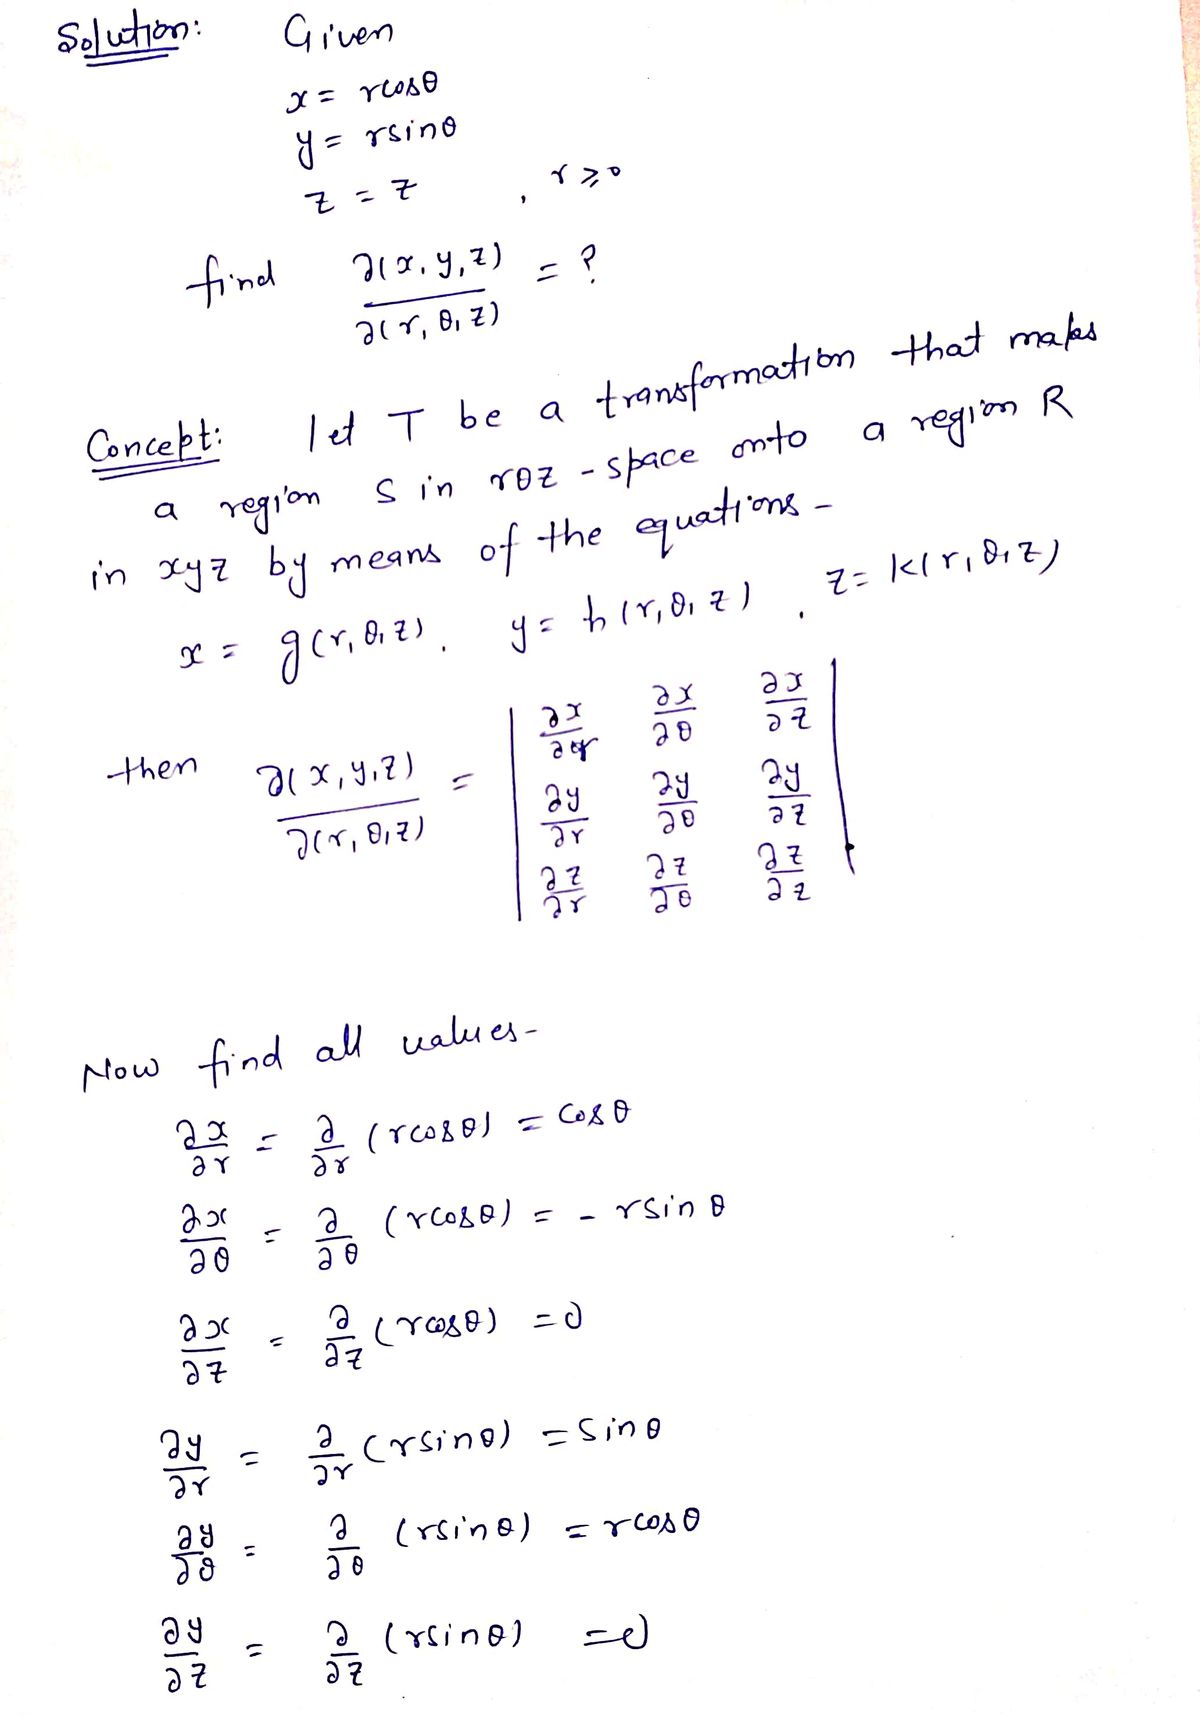 Solution: Given
x = rcosθ
y = rsinθ
z = z , r ≥ 0
find ∂(x, y, z) / ∂(r, θ, z) = ?
Concept: let T be a transformation that maps
a region S in rθz - space onto a region R
in xyz by means of the equations -
x = g(r, θ, z), y = h(r, θ, z), z = k(r, θ, z)
then ∂(x, y, z) / ∂(r, θ, z) = | ∂x/∂r ∂x/∂θ ∂x/∂z |
| ∂y/∂r ∂y/∂θ ∂y/∂z |
| ∂z/∂r ∂z/∂θ ∂z/∂z |
Now find all values -
∂x/∂r = ∂/∂r (rcosθ) = cosθ
∂x/∂θ = ∂/∂θ (rcosθ) = - rsinθ
∂x/∂z = ∂/∂z (rcosθ) = 0
∂y/∂r = ∂/∂r (rsinθ) = sinθ
∂y/∂θ = ∂/∂θ (rsinθ) = rcosθ
∂y/∂z = ∂/∂z (rsinθ) = 0